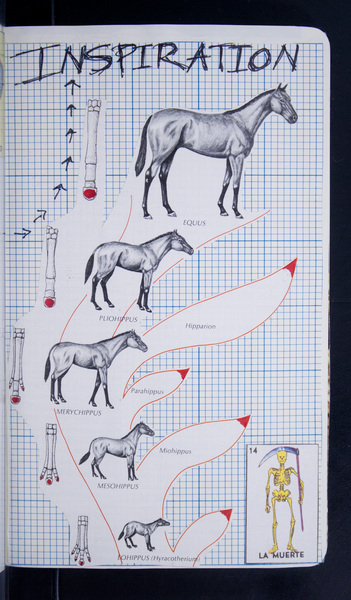 INSPIRATION
EQUUS
PLIOHIPPUS
Hipparion
MERYCHIPPUS
Parahippus
Miohippus
MESOHIPPUS
14
EOHIPPUS (Hyracotherium)
LA MUERTE